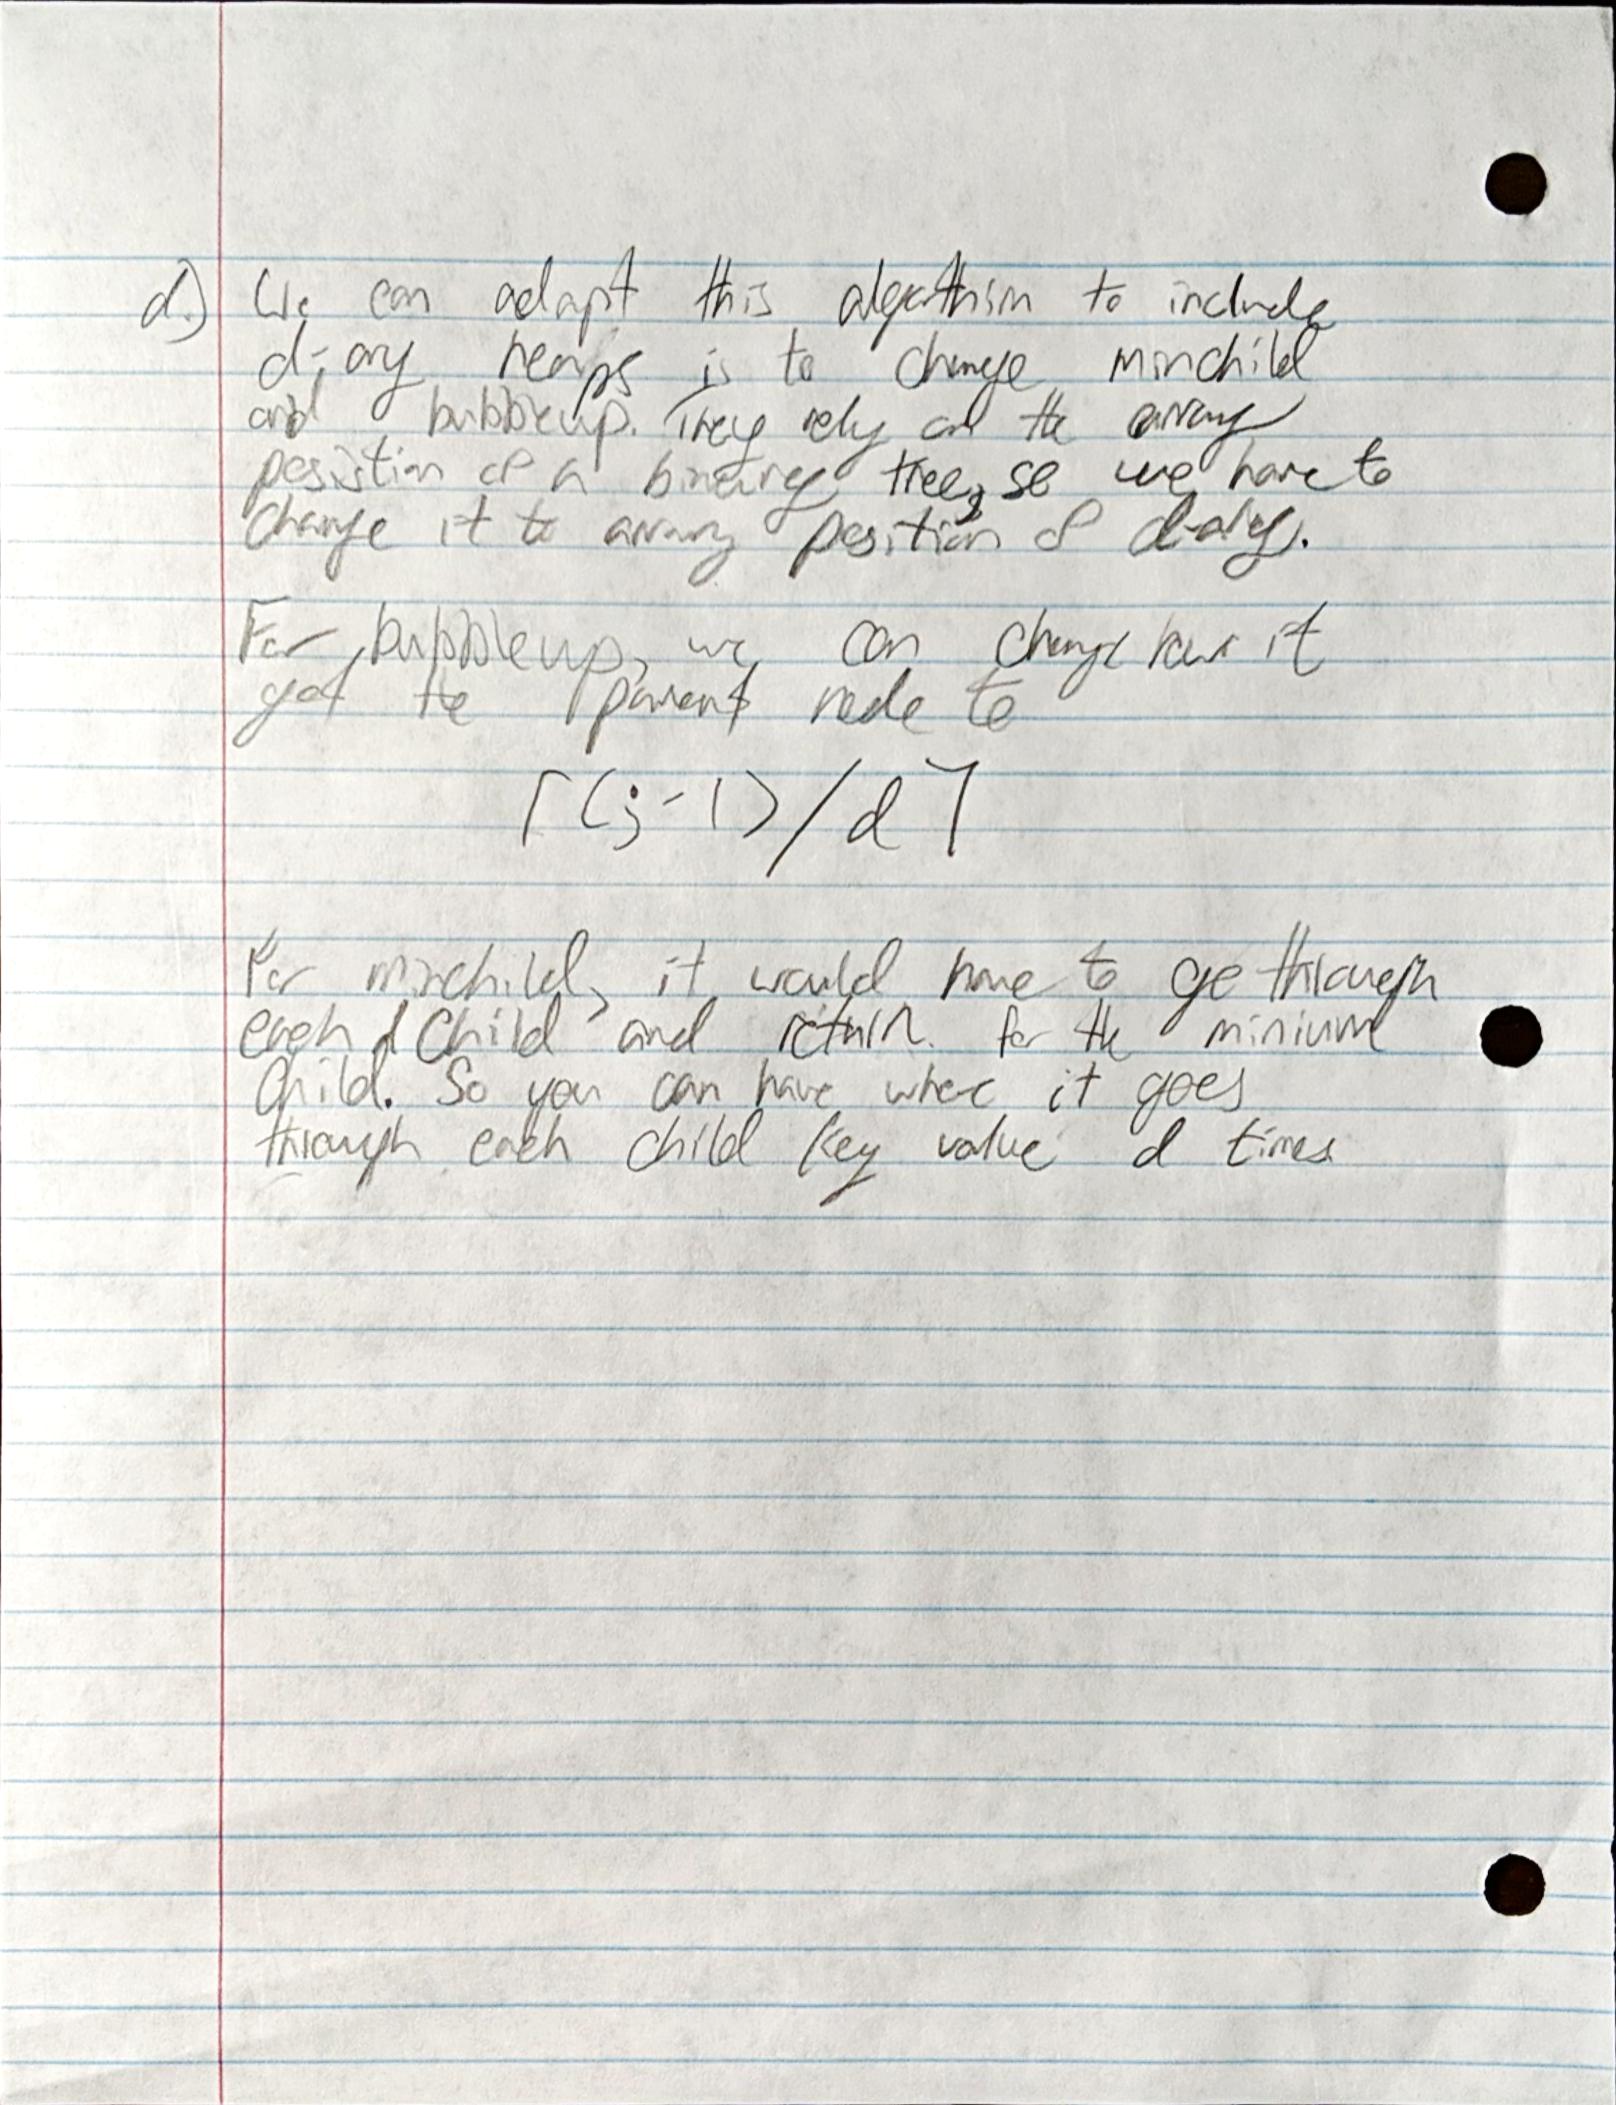 d.) We can adapt this algorithm to include
d-ary heaps is to change minchild
and bubbleup. They rely on the array
posistion of a binary tree, so we have to
change it to array position of d-ary.
For bubbleup, we can change how it
get the parent node to
⌈(j-1)/d⌉
For minchild, it would have to go through
each d child and return for the minium
child. So you can have where it goes
through each child key value d times